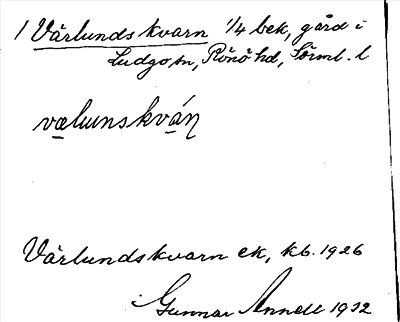 1 Vårlundskvarn 1/4 bek, gård i
Ludgo sn, Rönö hd, Sörml. l
vælunskváṇ
Vårlundskvarn ek, kb. 1926
Gunnar Annell 1932